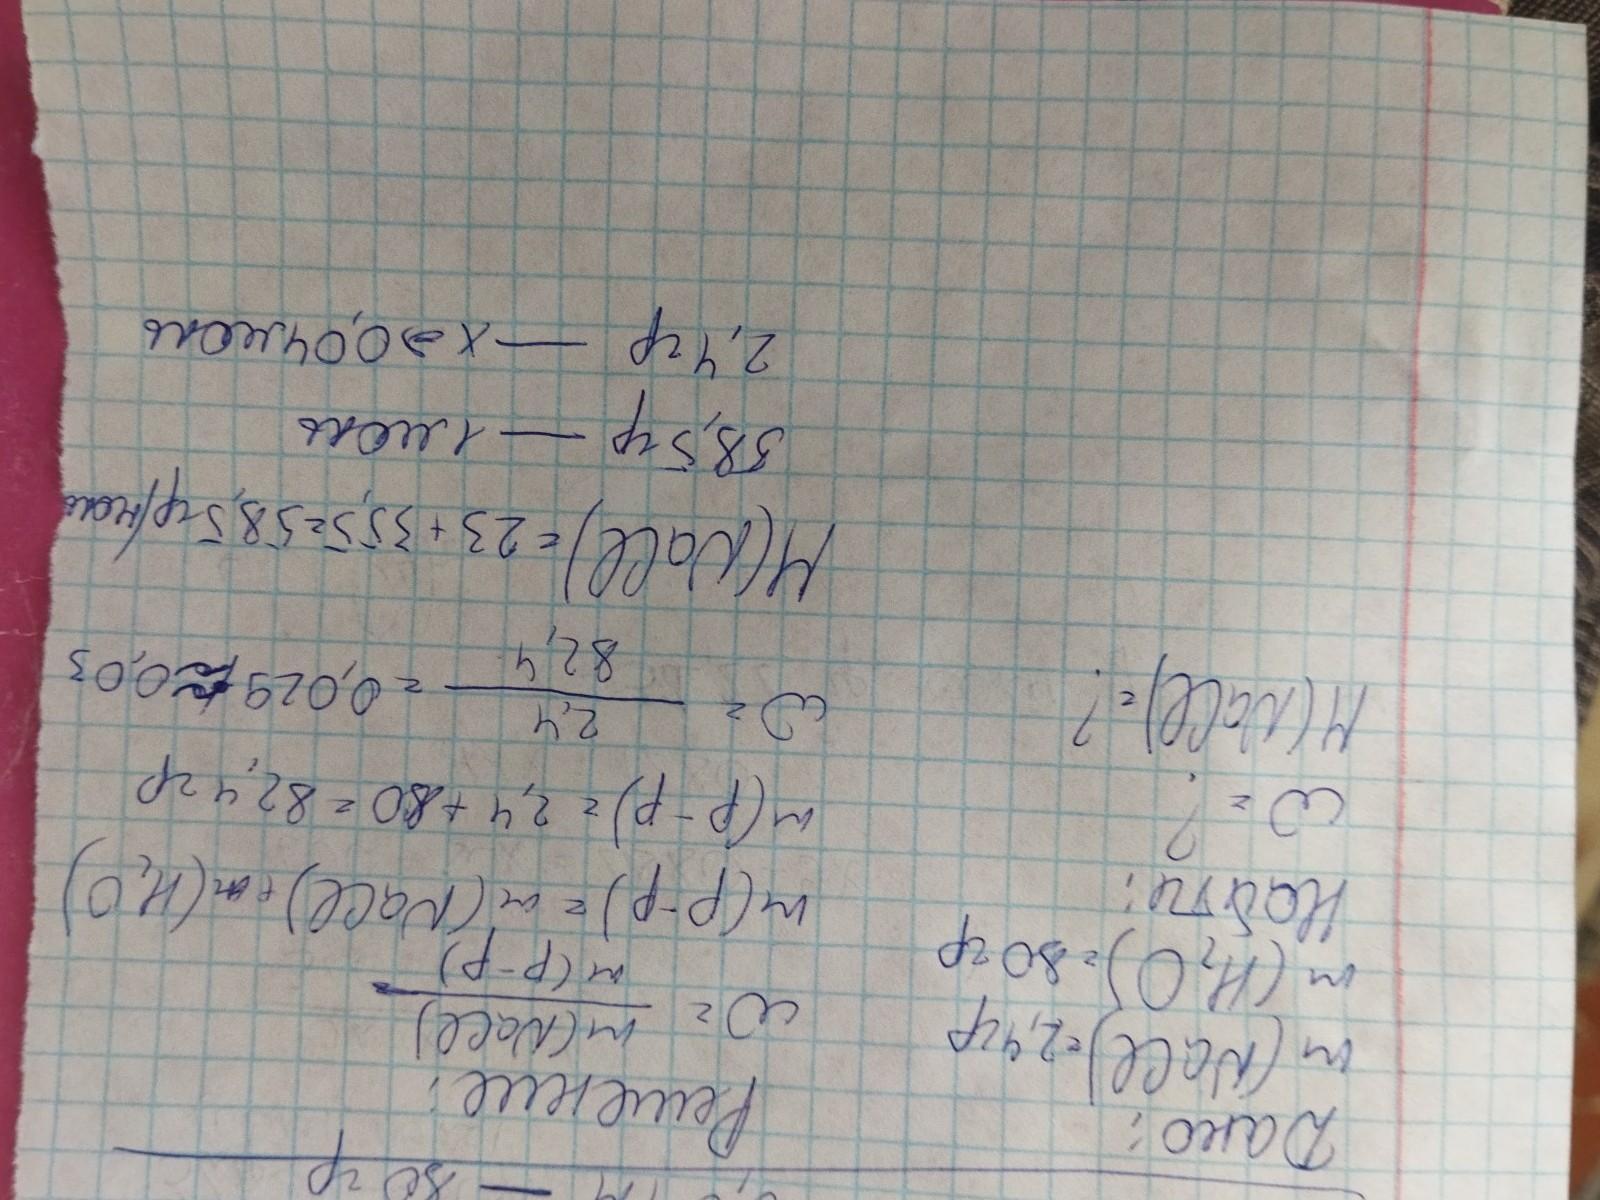 — 80 гр
Дано:
m(NaCl)=2,4гр
m(H₂O)=80гр
Найти:
ω = ?
M(NaCl)=?
Решение:
ω = m(NaCl) / m(р-р)
m(р-р) = m(NaCl)+m(H₂O)
m(р-р) = 2,4+80 = 82,4 гр
ω = 2,4 / 82,4 = 0,029 ≈ 0,03
M(NaCl) = 23 + 35,5=58,5 гр/моль
58,5 гр — 1 моль
2,4 гр — x = 0,04 моль